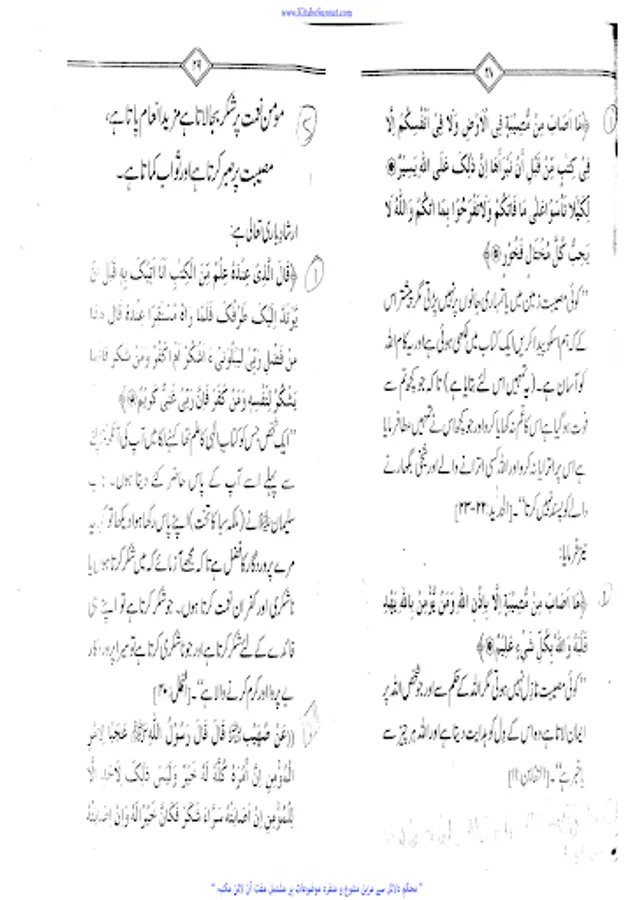 www.KitaboSunnat.com
۲۸
﴿مَا اَصَابَ مِنْ مُّصِيْبَةٍ فِى الْاَرْضِ وَلَا فِىْ اَنْفُسِكُمْ اِلَّا
فِىْ كِتٰبٍ مِّنْ قَبْلِ اَنْ نَّبْرَاَهَا اِنَّ ذٰلِكَ عَلَى اللهِ يَسِيْرٌ
لِكَيْلَا تَاْسَوْا عَلٰى مَا فَاتَكُمْ وَلَا تَفْرَحُوْا بِمَا اٰتٰكُمْ وَاللهُ لَا
يُحِبُّ كُلَّ مُخْتَالٍ فَخُوْرٍ﴾
”کوئی مصیبت زمین میں یا تمہاری جانوں پر نہیں پڑتی مگر پیشتر اس
کے کہ ہم اسکو پیدا کریں ایک کتاب میں لکھی ہوئی ہے اور یہ کام اللہ
کو آسان ہے۔ (یہ تمہیں اس لئے بتایا ہے) تا کہ جو کچھ تم سے
فوت ہو گیا ہے اس کا غم نہ کھایا کرو اور جو کچھ اس نے تمہیں عطا فرمایا
ہے اس پر اترایا نہ کرو اور اللہ کسی اترانے والے اور شیخی بگھارنے
والے کو پسند نہیں کرتا“۔ [الحدید: ۲۲-۲۳]
نیز فرمایا:
﴿مَا اَصَابَ مِنْ مُّصِيْبَةٍ اِلَّا بِاِذْنِ اللهِ وَمَنْ يُّؤْمِنْ بِاللهِ يَهْدِ
قَلْبَهُ وَاللهُ بِكُلِّ شَىْءٍ عَلِيْمٌ﴾
”کوئی مصیبت نازل نہیں ہوتی مگر اللہ کے حکم سے اور جو شخص اللہ پر
ایمان لاتا ہے وہ اس کے دل کو ہدایت دیتا ہے اور اللہ ہر چیز سے
باخبر ہے“۔ [التغابن: ۱۱]
۲۹
مؤمن نعمت پر شکر بجا لاتا ہے مزید انعام پاتا ہے،
مصیبت پر صبر کرتا ہے اور ثواب کماتا ہے۔
ارشاد باری تعالی ہے:
﴿قَالَ الَّذِىْ عِنْدَهٗ عِلْمٌ مِّنَ الْكِتٰبِ اَنَا اٰتِيْكَ بِهٖ قَبْلَ اَنْ
يَّرْتَدَّ اِلَيْكَ طَرْفُكَ فَلَمَّا رَاٰهُ مُسْتَقِرًّا عِنْدَهٗ قَالَ هٰذَا
مِنْ فَضْلِ رَبِّىْ لِيَبْلُوَنِىْ ءَ اَشْكُرُ اَمْ اَكْفُرُ وَمَنْ شَكَرَ فَاِنَّمَا
يَشْكُرُ لِنَفْسِهٖ وَمَنْ كَفَرَ فَاِنَّ رَبِّىْ غَنِىٌّ كَرِيْمٌ﴾
”ایک شخص جس کو کتاب الٰہی کا علم تھا کہنے لگا میں آپ کی آنکھ
سے پہلے اسے آپ کے پاس حاضر کئے دیتا ہوں۔ جب
سلیمان نے (ملکہ سبا کا تخت) اپنے پاس رکھا ہوا دیکھا تو کہا یہ
میرے پروردگار کا فضل ہے تا کہ مجھے آزمائے کہ میں شکر کرتا ہوں یا
ناشکری اور کفران نعمت کرتا ہوں۔ جو شکر کرتا ہے تو اپنے ہی
فائدے کے لئے شکر کرتا ہے اور جو ناشکری کرتا ہے تو میرا پروردگار
بے پروا اور کرم کرنے والا ہے“۔ [النمل: ۴۰]
((عَنْ صُهَيْبٍ قَالَ قَالَ رَسُوْلُ اللهِ ﷺ عَجَبًا لِاَمْرِ
الْمُؤْمِنِ اِنَّ اَمْرَهٗ كُلَّهٗ لَهٗ خَيْرٌ وَلَيْسَ ذٰلِكَ لِاَحَدٍ اِلَّا
لِلْمُؤْمِنِ اِنْ اَصَابَتْهُ سَرَّاءُ شَكَرَ فَكَانَ خَيْرًا لَّهٗ وَاِنْ اَصَابَتْهُ
" محکم دلائل سے مزین متنوع و منفرد موضوعات پر مشتمل مفت آن لائن مکتبہ "